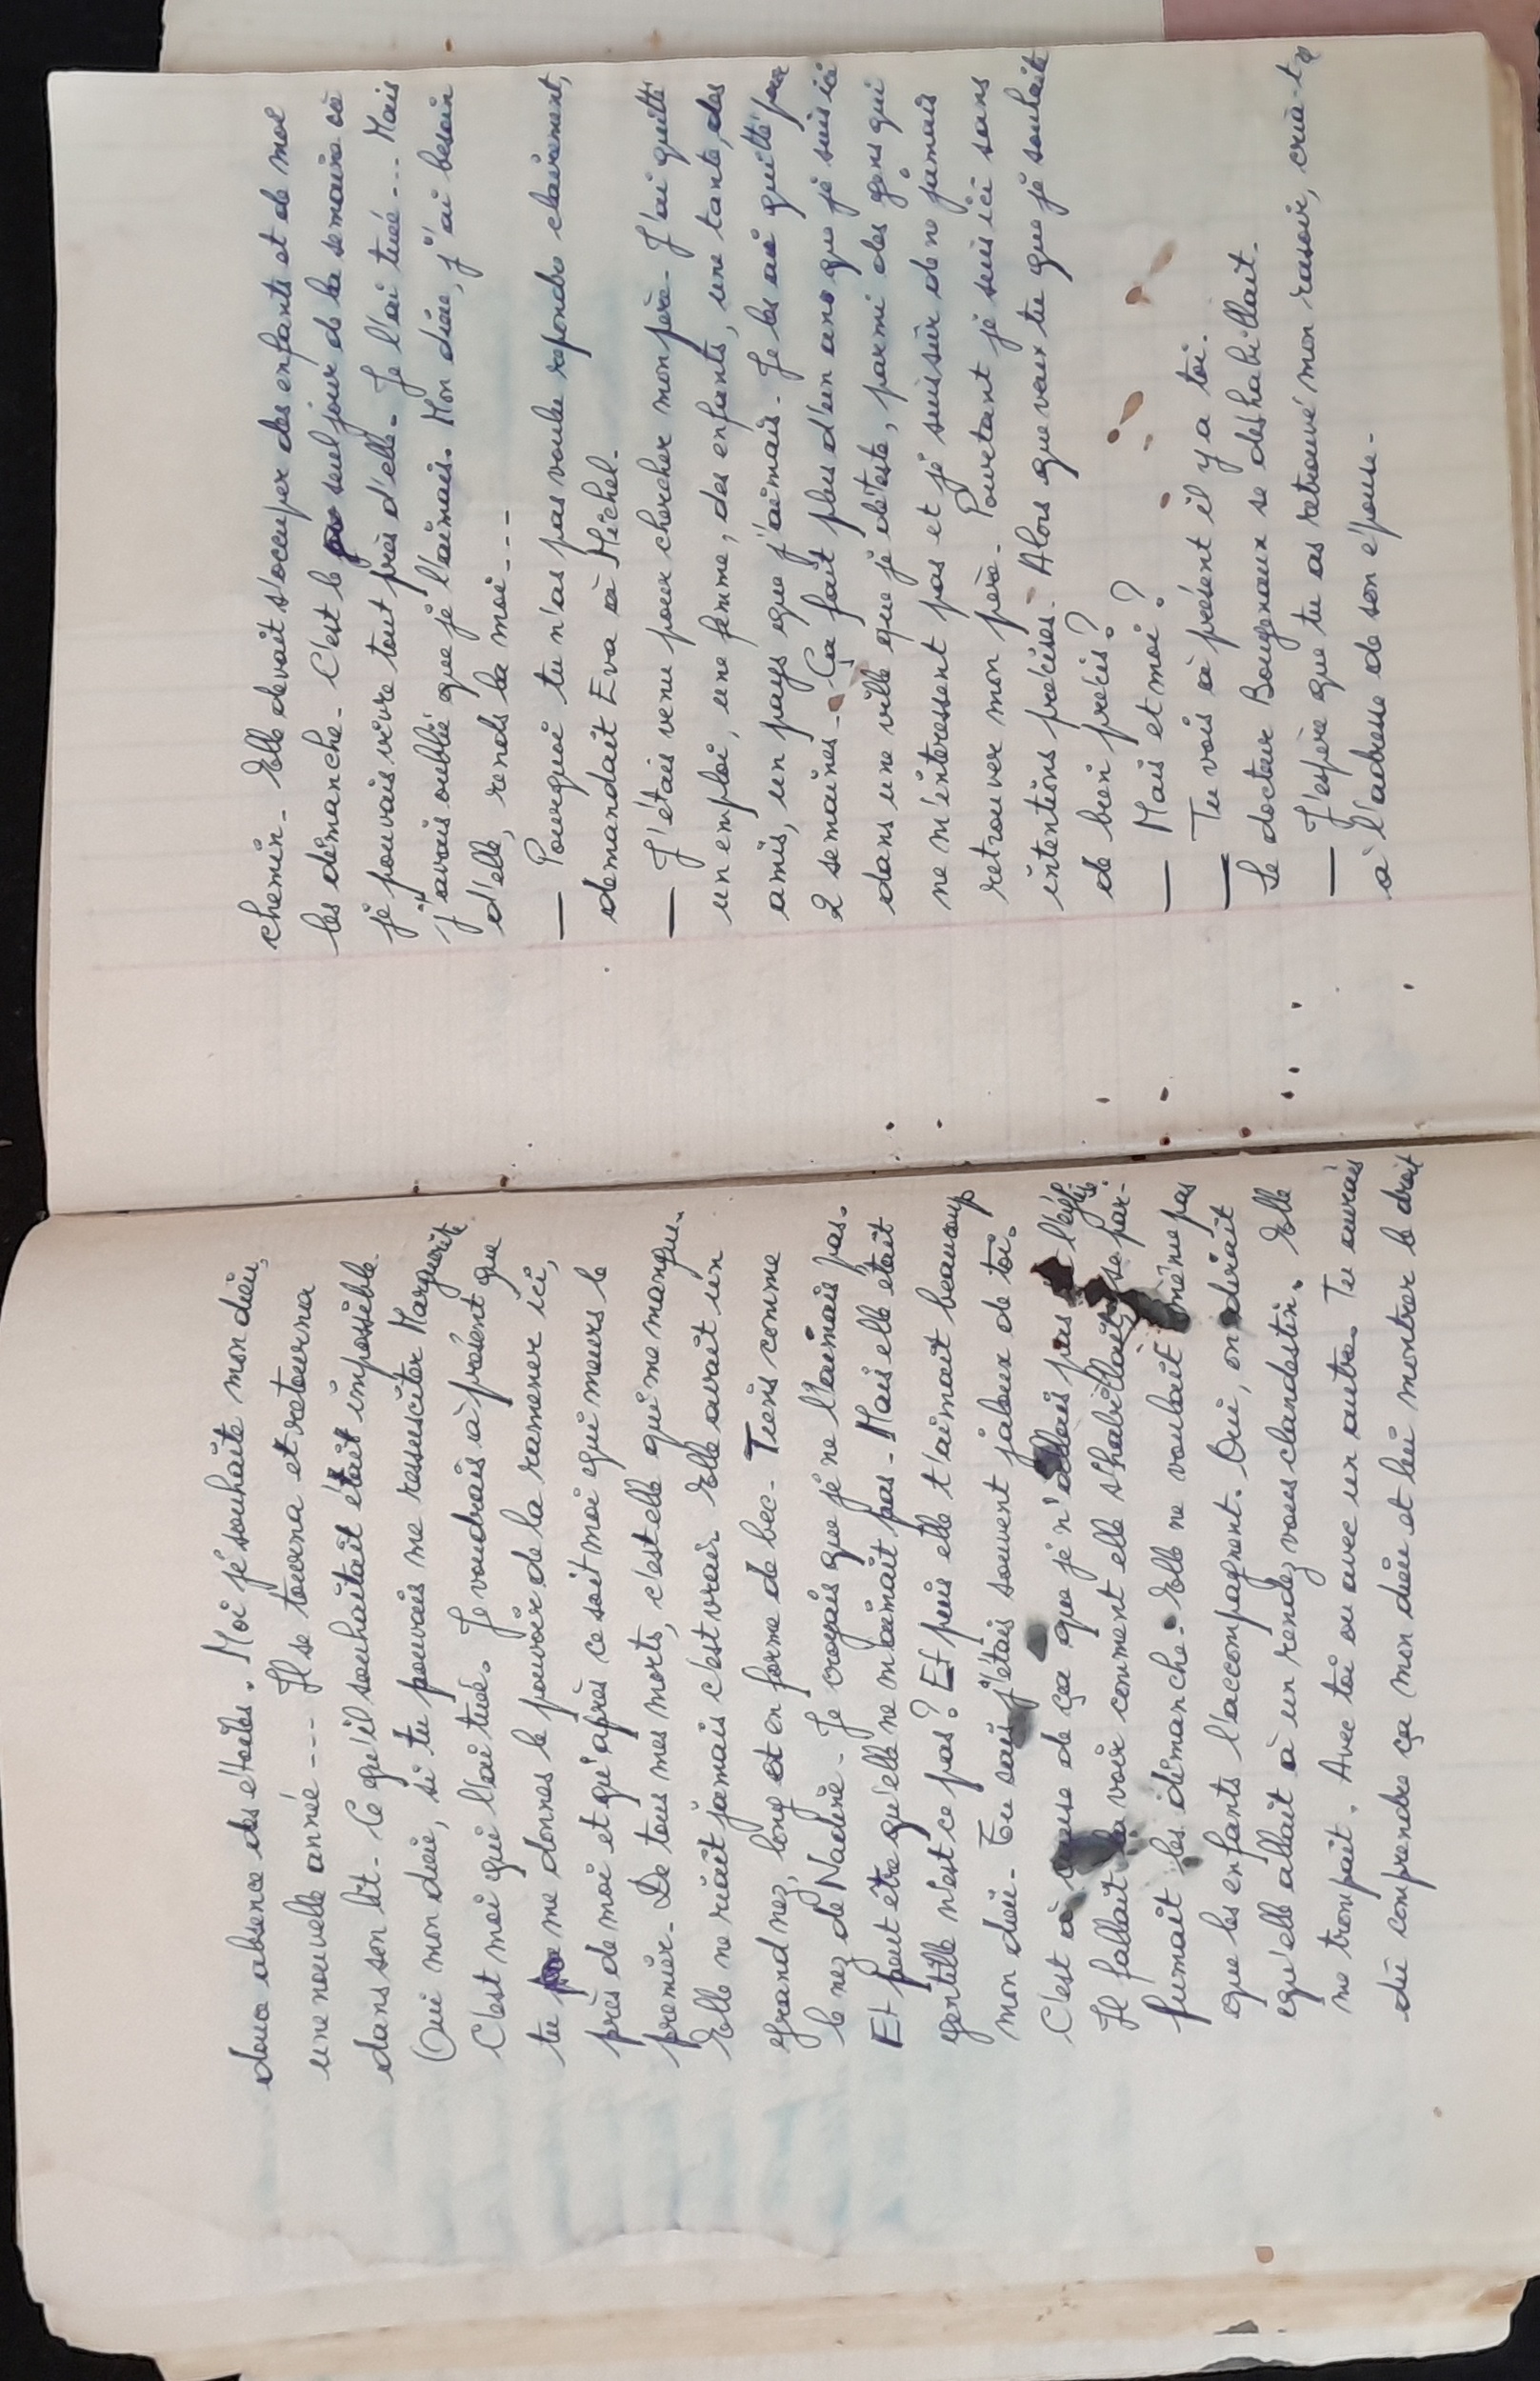 doux absence des etoiles. Moi je souhaite mon dieu,
une nouvelle année --- Il se tourna et retourna
dans son lit. Ce qu'il souhaitait était impossible.
Oui mon dieu, si tu pouvais me ressusciter Marguerite
C'est moi qui l'ai tuée. Je voudrais à présent que
tu me donnes le pouvoir de la ramener ici,
près de moi et qu'après ce soit moi qui meurs le
premier. De tous mes morts, c'est elle qui me manque.
Elle ne riait jamais c'est vrai. Elle avait un
grand nez, long et en forme de bec. Tiens comme
le nez de Nadine. Je croyais que je ne l'aimais pas.
Et peut être qu'elle ne m'aimait pas. Mais elle était
gentille n'est ce pas? Et puis elle t'aimait beaucoup
mon dieu. Tu sais j'étais souvent jaloux de toi.
C'est à cause de ça que je n'allais pas à l'église.
Il fallait la voir comment elle s'habillait, se par-
fumait les dimanche. Elle ne voulait même pas
que les enfants l'accompagnent. Oui, on dirait
qu'elle allait à un rendez vous clandestin. Elle
me trompait. Avec toi ou avec un autre. Tu aurais
dû comprendre ça mon dieu et lui montrer le droit
chemin. Elle devait s'occuper des enfants et de moi
les dimanche. C'est le seul jour de la semaine où
je pouvais vivre tout près d'elle. Je l'ai tuée --- Mais
j'avais oublié que je l'aimais. Mon dieu, j'ai besoin
d'elle, rends la moi ---
— Pourquoi tu n'as pas voulu repondre clairement,
demandait Eva à Michel.
— J'étais venu pour chercher mon père. J'ai quitté
un emploi, une femme, des enfants, une tante, des
amis, un pays que j'aimais. Je les ai quitté pour
2 semaines. Ça fait plus d'un ans que je suis ici
dans une ville que je déteste, parmi des gens qui
ne m'interessent pas et je suis sûr de ne jamais
retrouver mon père. Pourtant je suis ici sans
intentions précises. Alors que veux tu que je souhaite
de bien précis?
— Mais et moi?
— Tu vois à présent il y a toi.
Le docteur Bougeneaux se deshabillait.
— J'espère que tu as retrouvé mon rasoir, cria-t-il
à l'adresse de son épouse.